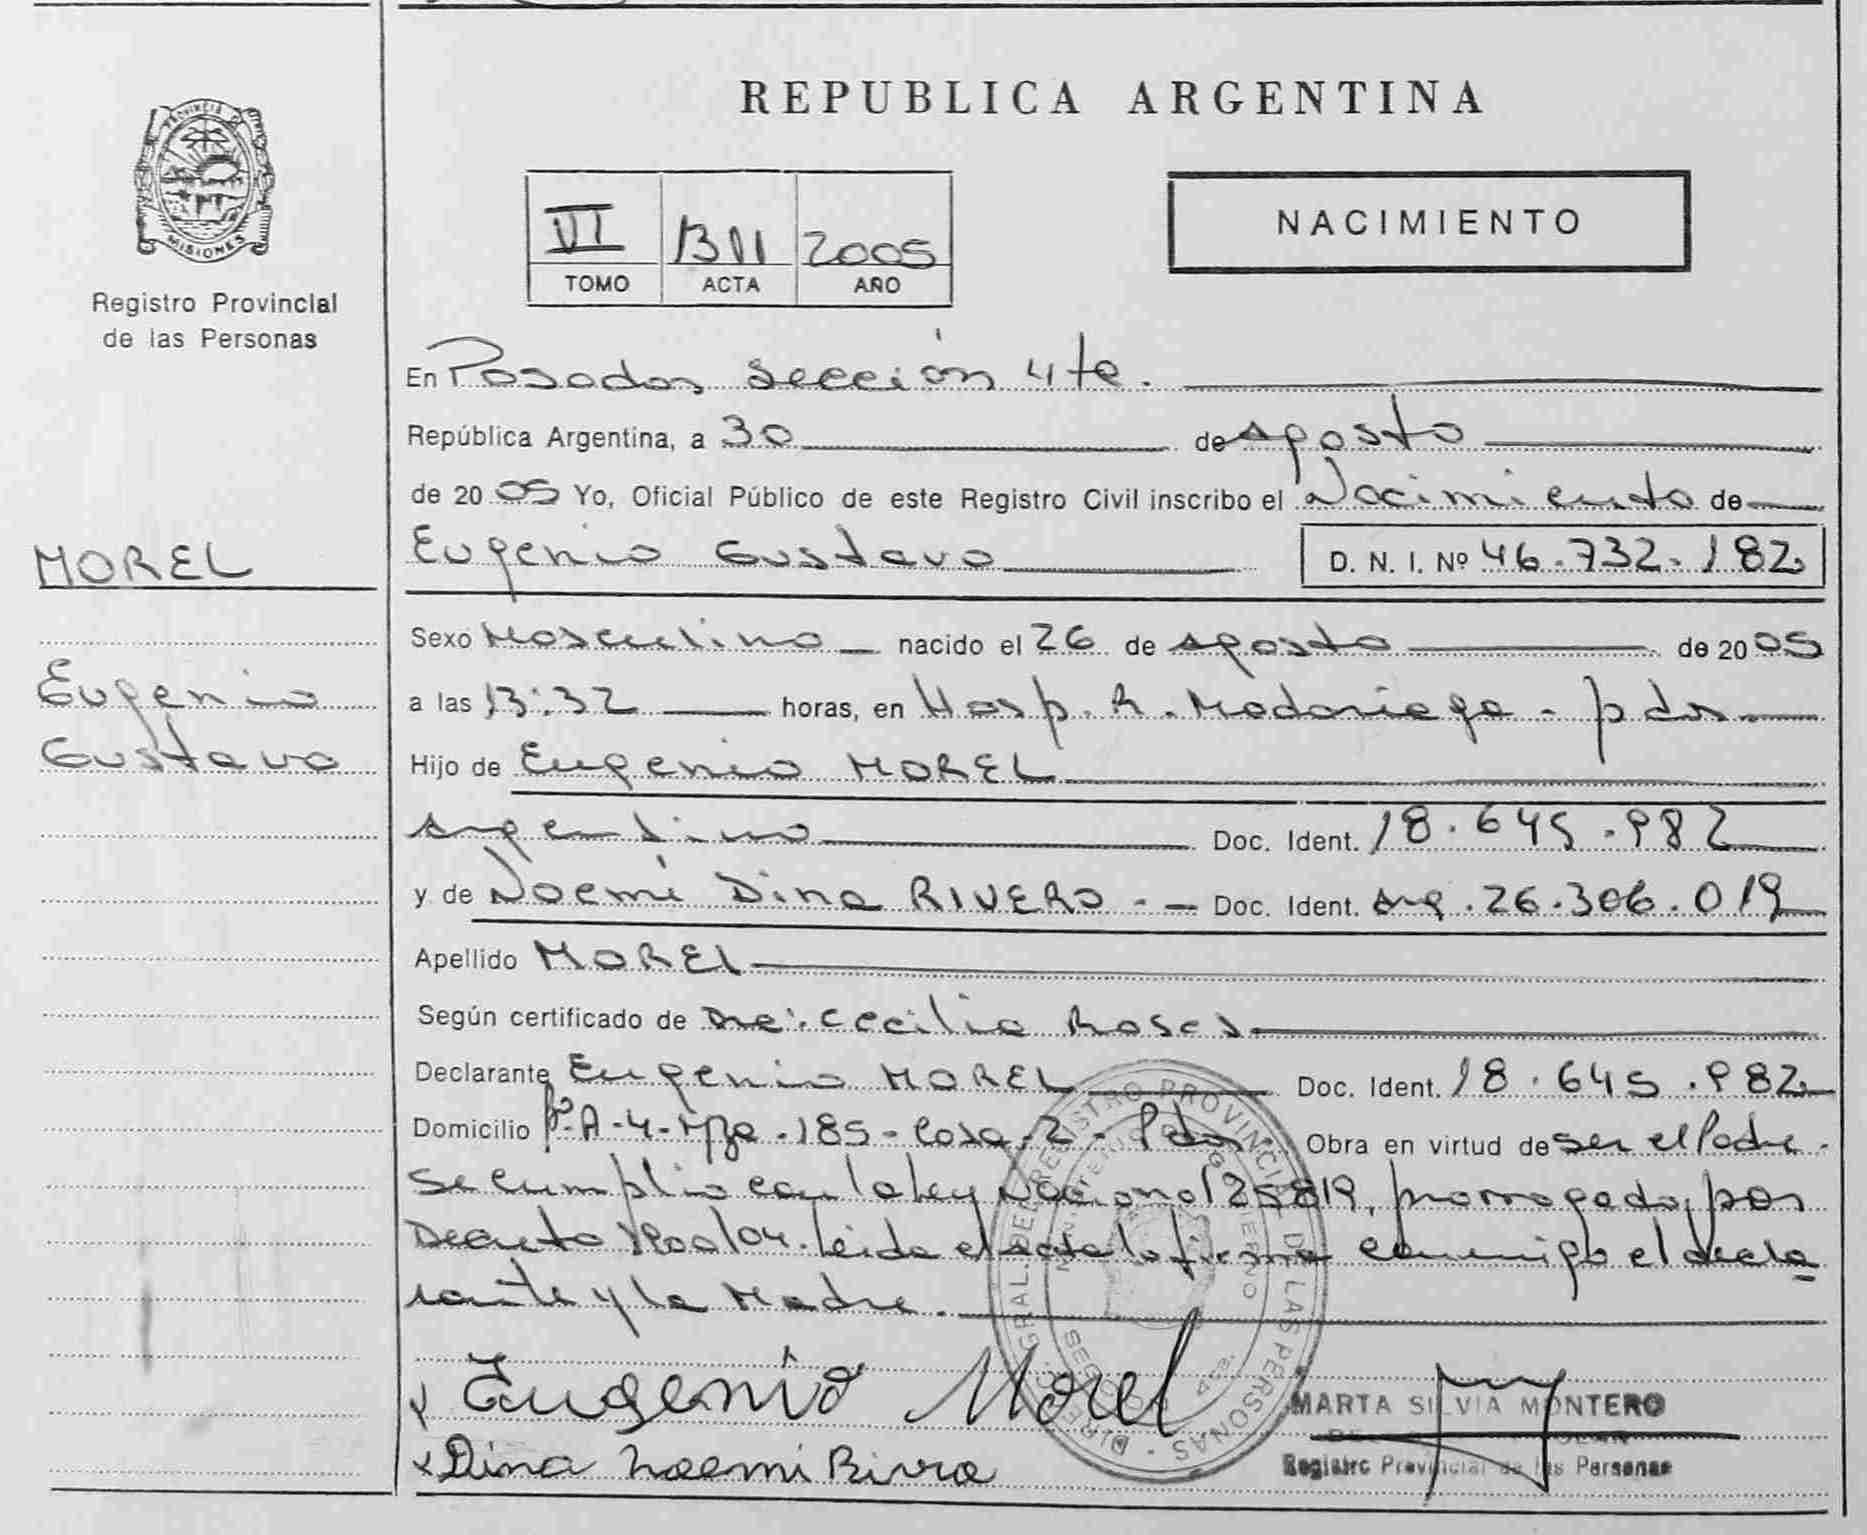 REPUBLICA ARGENTINA
PROVINCIA DE MISIONES
Registro Provincial
de las Personas
VI 1311 2005
TOMO ACTA AÑO
NACIMIENTO
En Posadas Sección 4ta.
República Argentina, a 30 de agosto
de 2005 Yo, Oficial Público de este Registro Civil inscribo el Nacimiento de
MOREL
Eugenio Gustavo D. N. I. Nº 46.732.182
Sexo Masculino nacido el 26 de agosto de 2005
Eugenio
a las 13:32 horas, en Hosp. R. Madariaga - pdas
Gustavo
Hijo de Eugenio MOREL
argentino Doc. Ident. 18.645.982
y de Noemí Dina RIVERO - Doc. Ident. arg. 26.306.019
Apellido MOREL
Según certificado de Dra. Cecilia Roses
Declarante Eugenio MOREL Doc. Ident. 18.645.982
Domicilio A-4-Mza.185-Casa-2-Pdas Obra en virtud de ser el Padre.
Se cumplio con la ley Nacional 25819, prorrogada por
Decreto 1200/04. Leida el acta la firma conmigo el decla
rante y la Madre.
DIREC. GRAL. DEL REGISTRO PROVINCIAL DE LAS PERSONAS
MINISTERIO DE GOBIERNO
x Eugenio Morel
MARTA SILVIA MONTERO
x Dina Noemi Rivero
Registro Provincial de las Personas